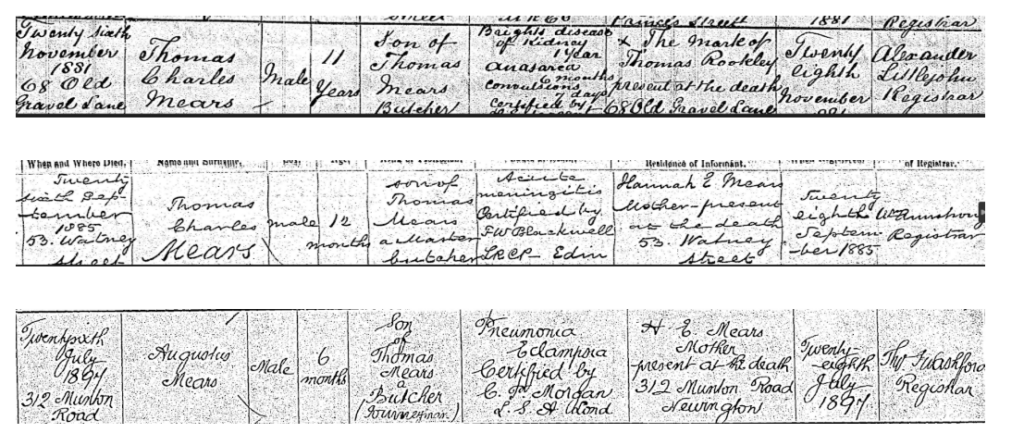 Twenty sixth
November
1881
68 Old
Gravel Lane
Thomas
Charles
Mears
Male
11
Years
Son of
Thomas
Mears
Butcher
Brights disease
of Kidney
1 year
Anasarca
6 months
Convulsions
7 days
Certified by
Princes Street
X The Mark of
Thomas Rookley
present at the death
68 Old Gravel Lane
1881
Twenty
eighth
November
Registrar
Alexander
Littlejohn
Registrar
When and Where Died.
Name and Surname.
Residence of Informant.
of Registrar.
Twenty
sixth Sep-
tember
1885
53. Watney
Street
Thomas
Charles
Mears
male
12
months
son of
Thomas
Mears
a Master
butcher
Acute
meningitis
Certified by
F W Blackwell
LRCP Edin
Hannah E Mears
Mother-present
at the death
53. Watney
Street
Twenty
eighth
Septem
ber 1885
Registrar
Twentysixth
July
1897
312 Munton
Road
Augustus
Mears
Male
6
months
Son
of
Thomas
Mears
a
Butcher
(Journeyman)
Pneumonia
Eclampsia
Certified by
C. Morgan
L. S. A Lond
H E. Mears
Mother
present at the death
312 Munton Road
Newington
Twenty-
eighth
July
1897
Registrar